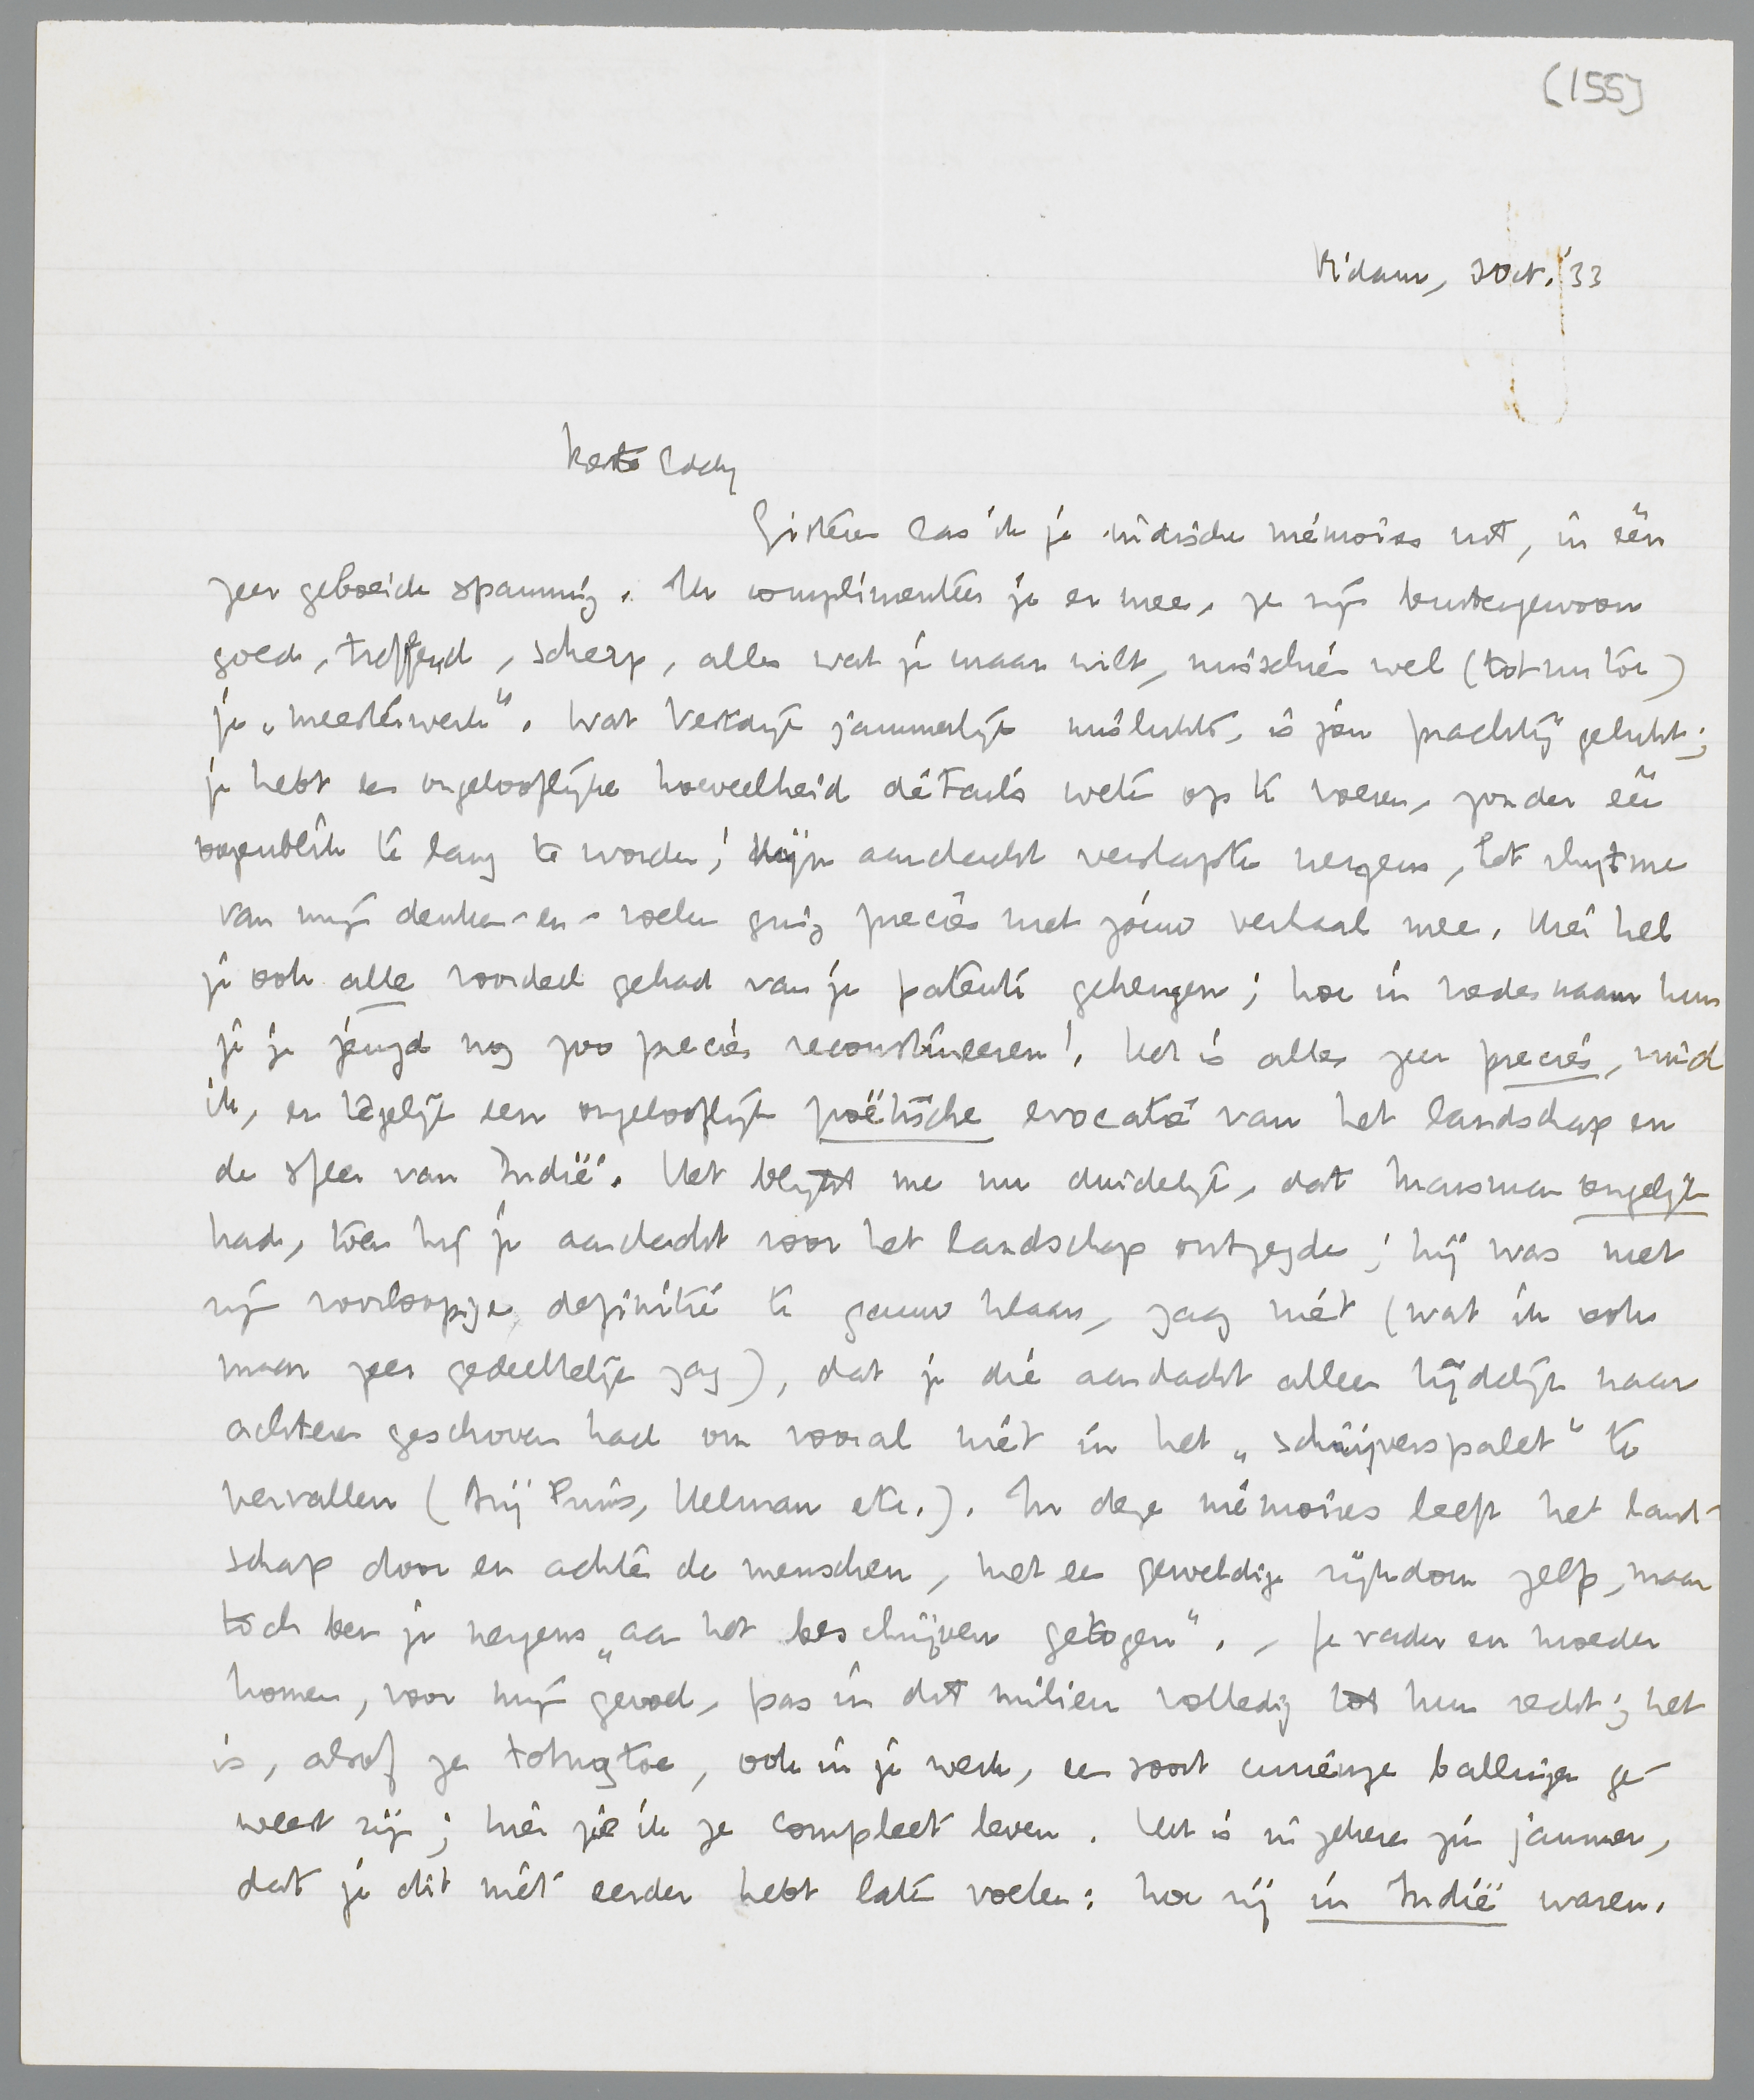 [155]
R'dam, 3 Oct. '33
Beste Eddy
Gisteren las ik je indische mémoires uit, in één
zeer geboeide spanning. Ik complimenteer je er mee, ze zijn buitengewoon
goed, treffend, scherp, alles wat je maar wilt, misschien wel (tot nu toe)
je „meesterwerk". Wat Vestdijk jammerlijk mislukte, is jou prachtig gelukt;
je hebt een ongelooflijke hoeveelheid détails weten op te roepen, zonder één
oogenblik te lang te worden; mijn aandacht verslapte nergens, het rhytme
van mijn denken-en-voelen ging precies met jouw verhaal mee. Hier heb
je ook alle voordeel gehad van je patente geheugen; hoe in vredesnaam kun
je je jeugd nog zoo precies reconstrueeren! Het is alles zeer precies, vind
ik, en tegelijk een ongelooflijk poëtische evocatie van het landschap en
de sfeer van Indië. Het blijkt me nu duidelijk, dat Marsman ongelijk
had, toen hij je aandacht voor het landschap ontzegde; hij was met
zijn voorloopige definitie te gauw klaar, zag niet (wat ik ook
maar zeer gedeeltelijk zag), dat je die aandacht alleen tijdelijk naar
achteren geschoven had om vooral niet in het „schrijverspalet" te
vervallen (Arij Prins, Helman etc.). In deze mémoires leeft het land-
schap door en achter de menschen, met een geweldige rijkdom zelfs, maar
toch ben je nergens „aan het beschrijven getogen". - Je vader en moeder
komen, voor mijn gevoel, pas in dit milieu volledig tot hun recht; het
is, alsof ze totnogtoe, ook in je werk, een soort curieuze ballingen ge-
weest zijn; hier zie ik ze compleet leven. Het is in zekere zin jammer,
dat je dit niet eerder hebt laten voelen: hoe zij in Indië waren.